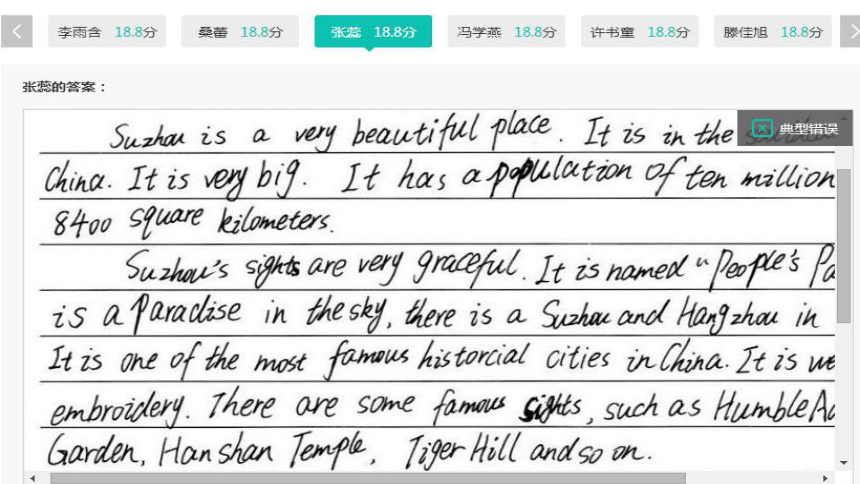 李雨含 18.8分 桑蕾 18.8分 张蕊 18.8分 冯学燕 18.8分 许书童 18.8分 滕佳旭 18.8分
张蕊的答案：
典型错误
Suzhou is a very beautiful place. It is in the
China. It is very big. It has a population of ten million
8400 square kilometers.
Suzhou's sights are very graceful. It is named "People's
is a Paradise in the sky, there is a Suzhou and Hangzhou in
It is one of the most famous historcial cities in China. It is
embroidery. There are some famous sights, such as Humble
Garden, Hanshan Temple, Tiger Hill and so on.